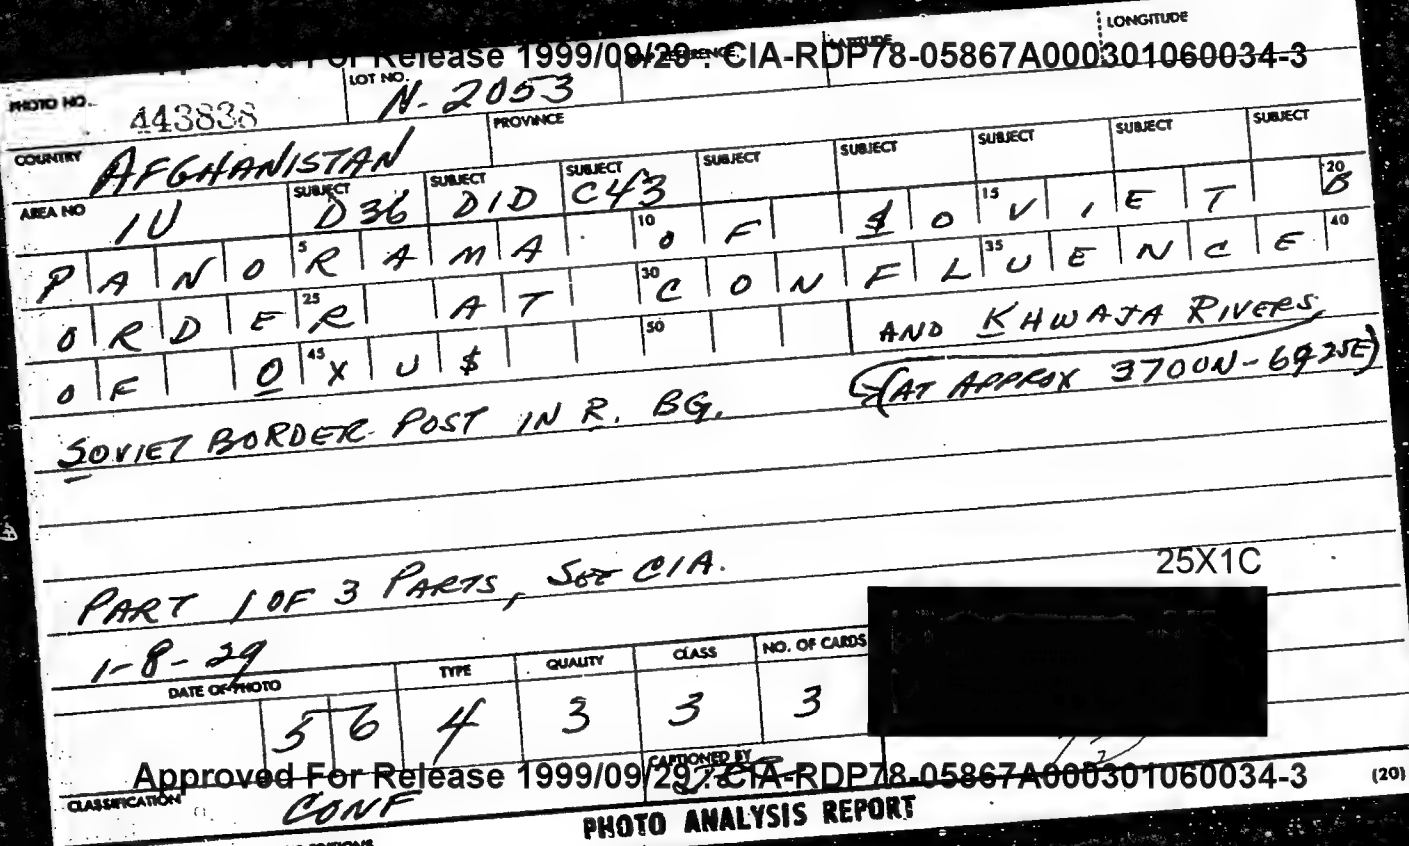 LONGITUDE
Approved For Release 1999/09/29 : CIA-RDP78-05867A000301060034-3
PHOTO NO. 443838 LOT NO. N-2053
COUNTRY AFGHANISTAN PROVINCE
AREA NO 1U SUBJECT D36 SUBJECT D1D SUBJECT C43 SUBJECT SUBJECT SUBJECT SUBJECT SUBJECT
PANO 5 RAMA 10 OF $O 15 VIET 20 B
ORDE 25 R AT 30 CONFL 35 UENCE 40
OF O 45 XU$ 50 AND KHWAJA RIVERS
(AT APPROX 3700N-6925E)
SOVIET BORDER POST IN R. BG.
PART 1 OF 3 PARTS, SEE CIA.
25X1C
1-8-29
DATE OF PHOTO TYPE QUALITY CLASS NO. OF CARDS
56 4 3 3 3
CAPTIONED BY
Approved For Release 1999/09/29 : CIA-RDP78-05867A000301060034-3
CLASSIFICATION CONF
(20)
PHOTO ANALYSIS REPORT